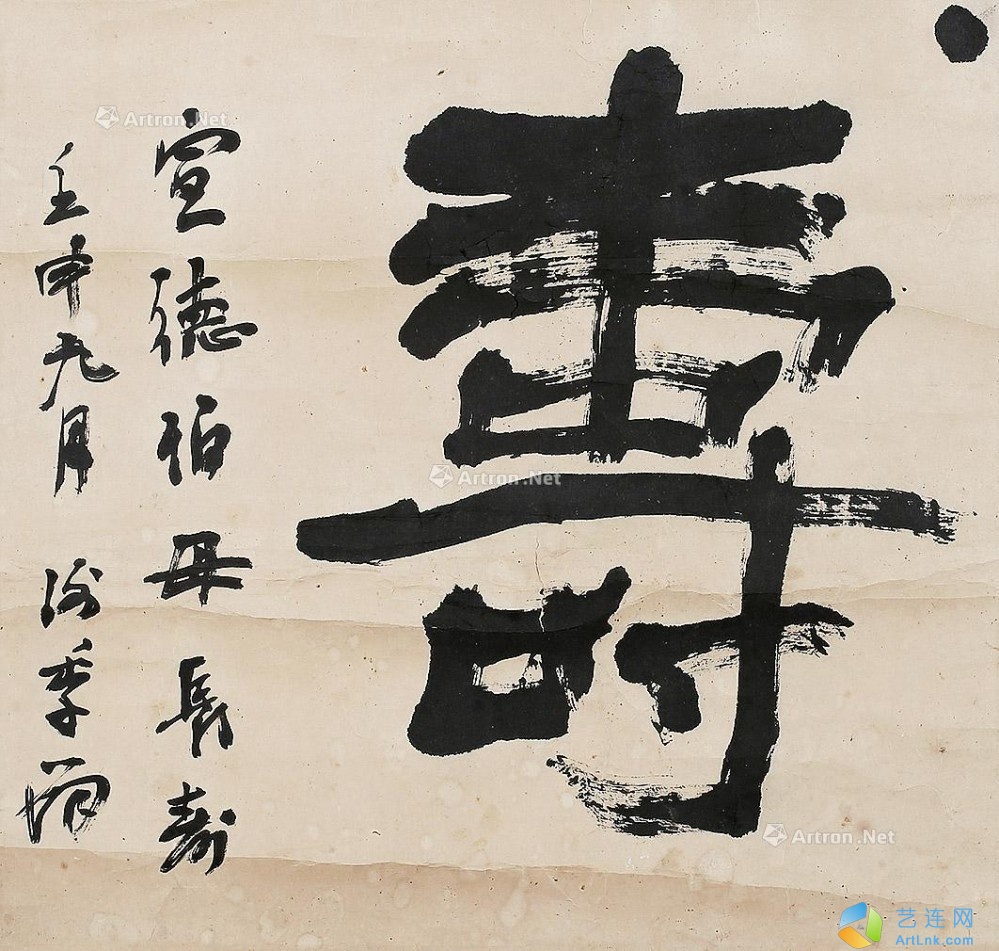 壽
宣德伯母長壽
壬申九月 季
Artron.Net
Artron.Net
Artron.Net
艺连网
ArtLnk.com